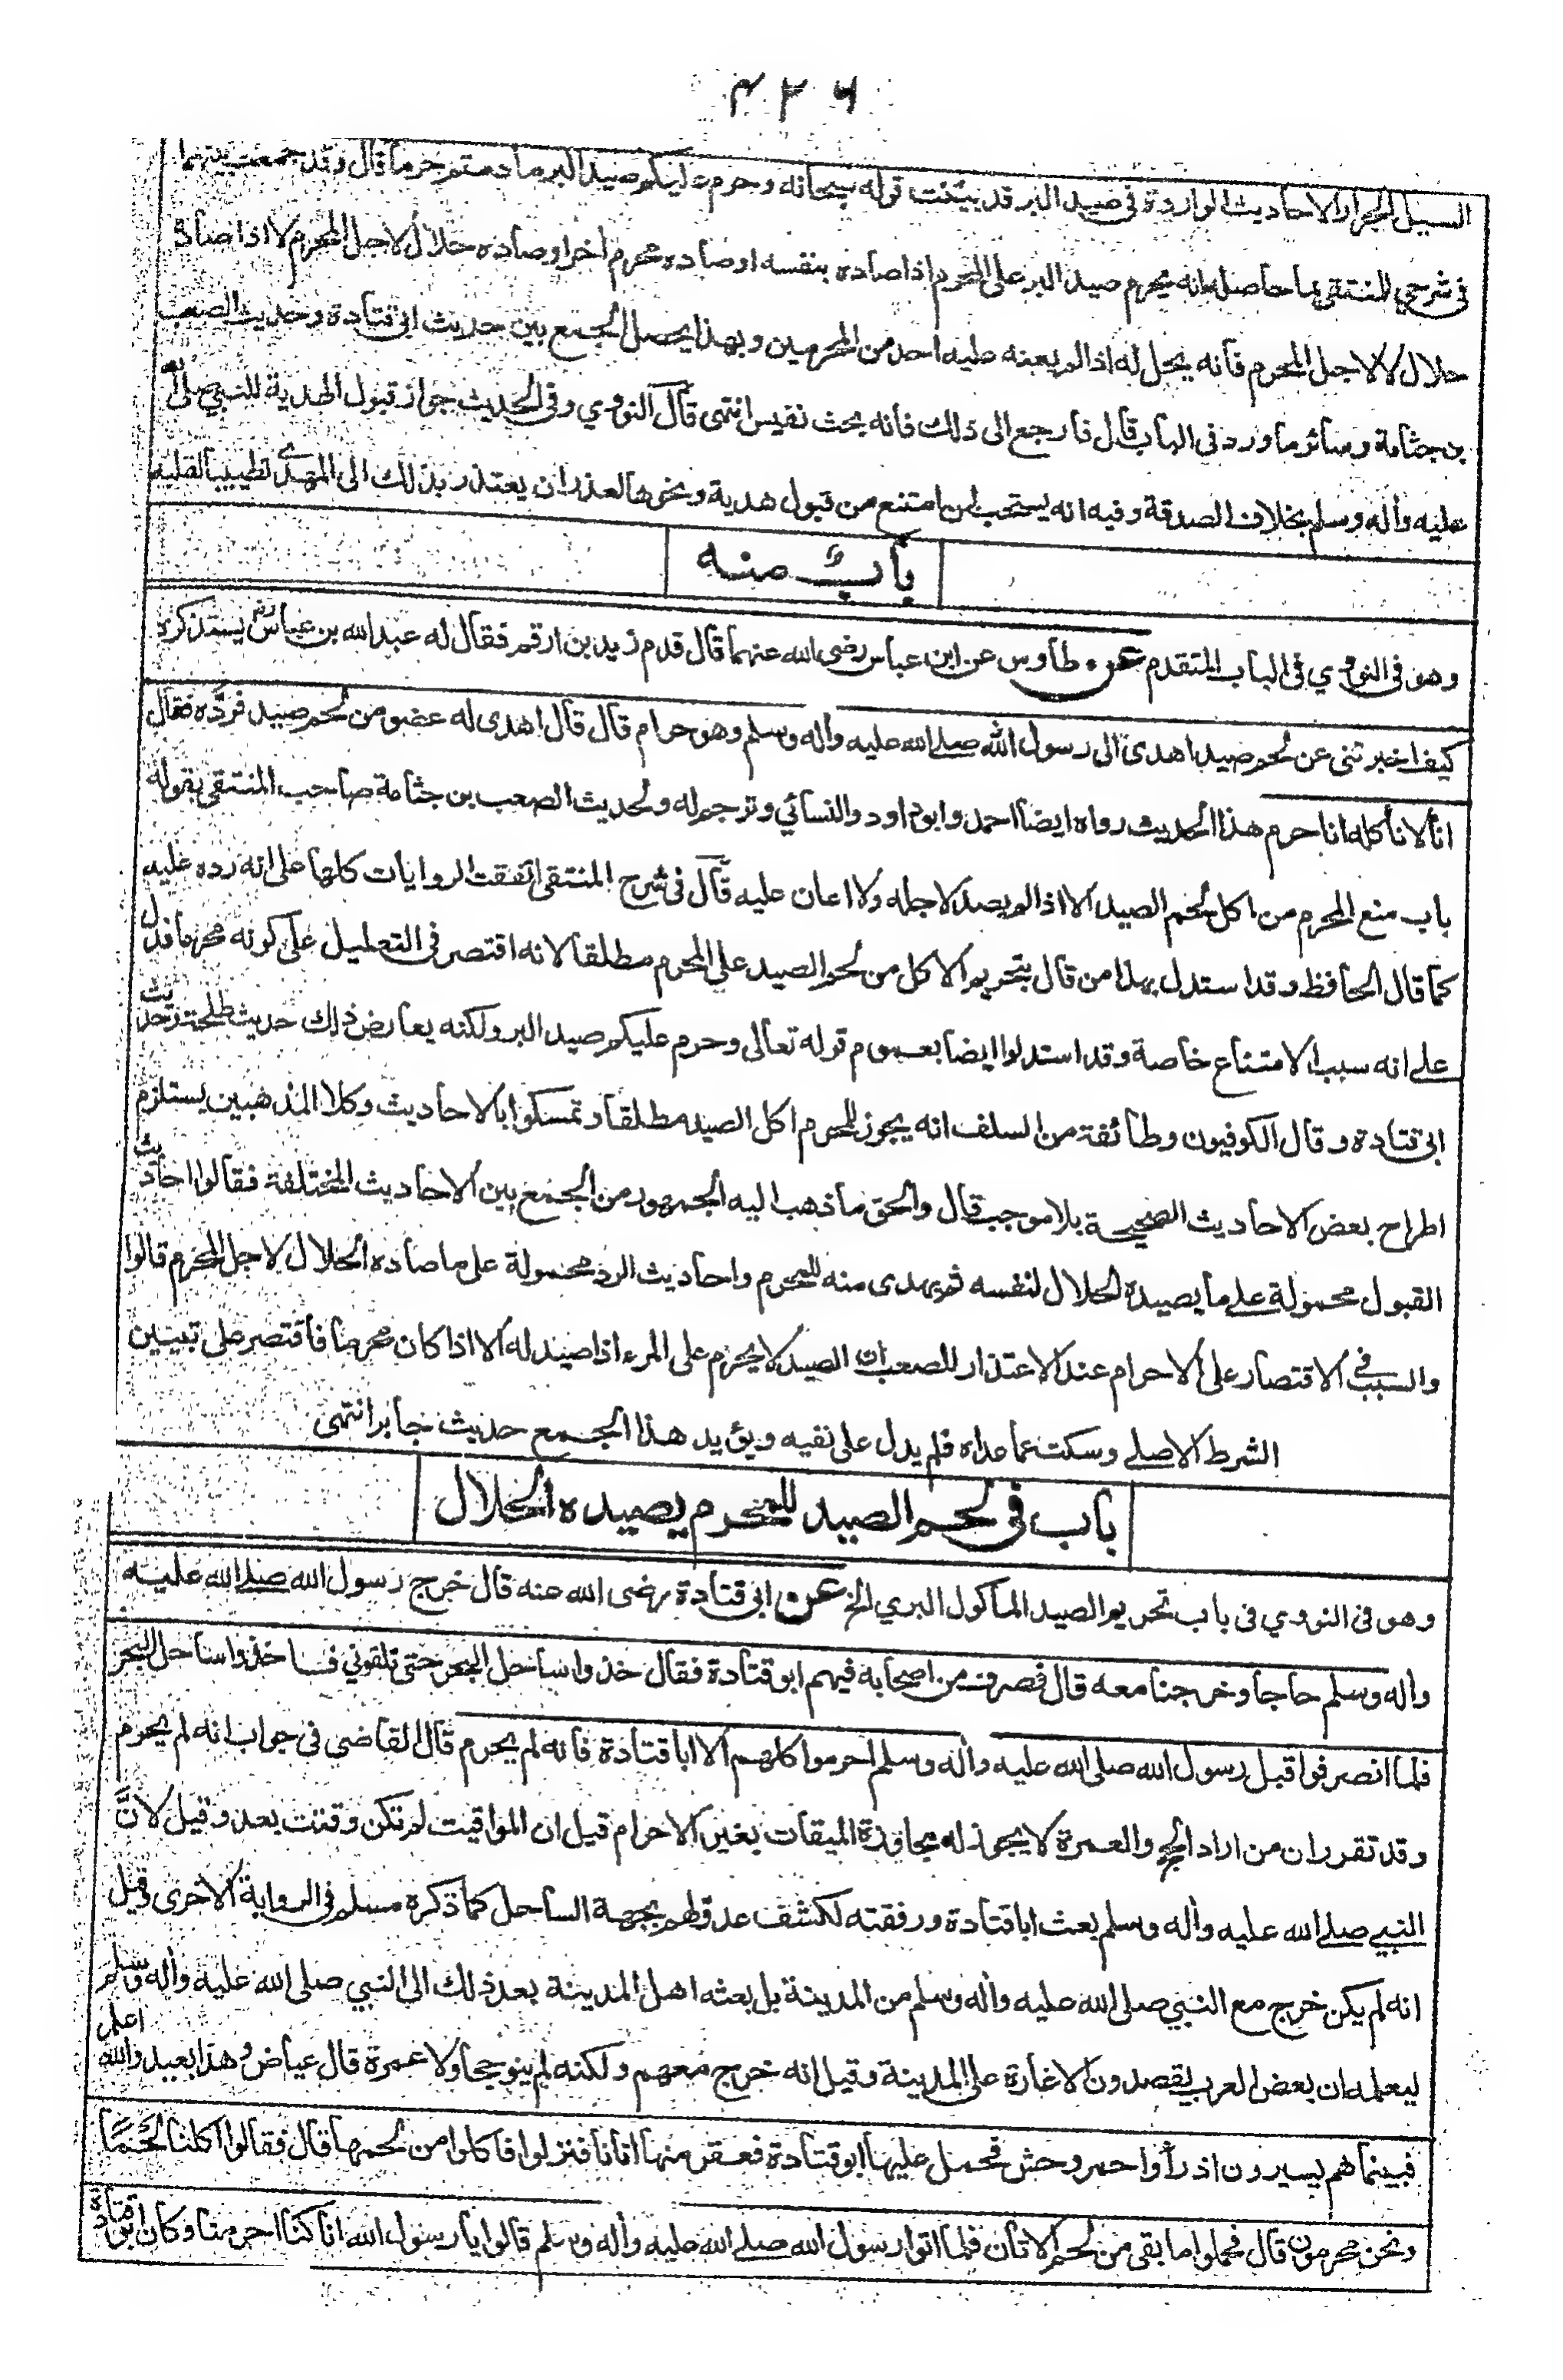 ۴۲۶
السيل الجرار الاحاديث الواردة فى صيد البر قد بينت قوله سبحانه وحرم عليكم صيد البر ما دمتم حرما قال وقد جمعت بينهما
فى شرحي للمنتقى بما حاصله انه يحرم صيد البر على المحرم اذا صاده بنفسه او صاده محرم اخر او صاده حلال لاجل المحرم لا اذا صاده
حلال لا لاجل المحرم فانه يحل له اذا لم يعنه عليه احد من المحرمين وبهذا يحصل الجمع بين حديث ابى قتادة وحديث الصعب
بن جثامة وسائر ما ورد فى الباب قال فارجع الى ذلك فانه بحث نفيس انتهى قال النووي وفى الحديث جواز قبول الهدية للنبي صلى الله
عليه وأله وسلم بخلاف الصدقة وفيه انه يستحب لمن امتنع من قبول هدية ونحوها لعذر ان يعتذر بذلك الى المهدى تطييبا لقلبه
باب منه
وهو فى النووي فى الباب المتقدم عن طاوس عن ابن عباس رضى الله عنهما قال قدم زيد بن ارقم فقال له عبد الله بن عباس رض يستذكره
كيف اخبرتنى عن لحم صيد اهدى الى رسول الله صلى الله عليه وأله وسلم وهو حرام قال قال اهدى له عضو من لحم صيد فرده فقال
انا لا نأكله انا حرم هذا الحديث رواه ايضا احمد وابوداود والنسائي وترجم له ولحديث الصعب بن جثامة صاحب المنتقى بقوله
باب منع المحرم من اكل لحم الصيد الا اذا لم يصد لاجله ولا اعان عليه قال فى شرح المنتقى اتفقت الروايات كلها على انه رده عليه
كما قال الحافظ وقد استدل بهذا من قال بتحريم الاكل من لحم الصيد على المحرم مطلقا لانه اقتصر فى التعليل على كونه محرما فدل
على انه سبب الامتناع خاصة وقد استدلوا ايضا بعموم قوله تعالى وحرم عليكم صيد البر ولكنه يعارض ذلك حديث طلحة وحديث
ابى قتادة وقال الكوفيون وطائفة من السلف انه يجوز للمحرم اكل الصيد مطلقا وتمسكوا بالاحاديث وكلا المذهبين يستلزم
اطراح بعض الاحاديث الصحيحة بلا موجب قال والحق ما ذهب اليه الجمهور من الجمع بين الاحاديث المختلفة فقالوا احاديث
القبول محمولة على ما يصيده الحلال لنفسه ثم يهدى منه للمحرم واحاديث الرد محمولة على ما صاده الحلال لاجل المحرم قالوا
والسبب فى الاقتصار على الاحرام عند الاعتذار للصعب ان الصيد لا يحرم على المرء اذا صيد له الا اذا كان محرما فاقتصر على تبيين
الشرط الاصلى وسكت عما عداه فلم يدل على نفيه ويؤيد هذا الجمع حديث جابر انتهى
باب فى لحم الصيد للمحرم يصيده الحلال
وهو فى النووي فى باب تحريم الصيد المأكول البري الخ عن ابى قتادة رضى الله عنه قال خرج رسول الله صلى الله عليه
وأله وسلم حاجا وخرجنا معه قال فصرف من اصحابه فيهم ابو قتادة فقال خذوا ساحل البحر حتى تلقوني فساخذوا ساحل البحر
فلما انصرفوا قبل رسول الله صلى الله عليه وأله وسلم احرموا كلهم الا ابا قتادة فانه لم يحرم قال القاضي فى جواب انه لم يحرم
وقد تقرر ان من اراد الحج والعمرة لا يجوز له مجاوزة الميقات بغير الاحرام قيل ان المواقيت لم تكن وقتت بعد وقيل لانَّ
النبي صلى الله عليه وأله وسلم بعث ابا قتادة ورفقته لكشف عدو لهم بجهة الساحل كما ذكره مسلم فى الرواية الاخرى وقيل
انه لم يكن خرج مع النبي صلى الله عليه وأله وسلم من المدينة بل بعثه اهل المدينة بعد ذلك الى النبي صلى الله عليه وأله وسلم
ليعلمه ان بعض العرب يقصدون الاغارة على المدينة وقيل انه خرج معهم ولكنه لم ينو حجا ولا عمرة قال عياض وهذا بعيد والله اعلم
فبينما هم يسيرون اذ رأوا حمر وحش فحمل عليها ابو قتادة فعقر منها اتانا فنزلوا فاكلوا من لحمها قال فقالوا اكلنا لَحْمًا
ونحن محرمون قال فحملوا ما بقى من لحم الاتان فلما اتوا رسول الله صلى الله عليه وأله وسلم قالوا يا رسول الله انا كنا احرمنا وكان ابو قتادة